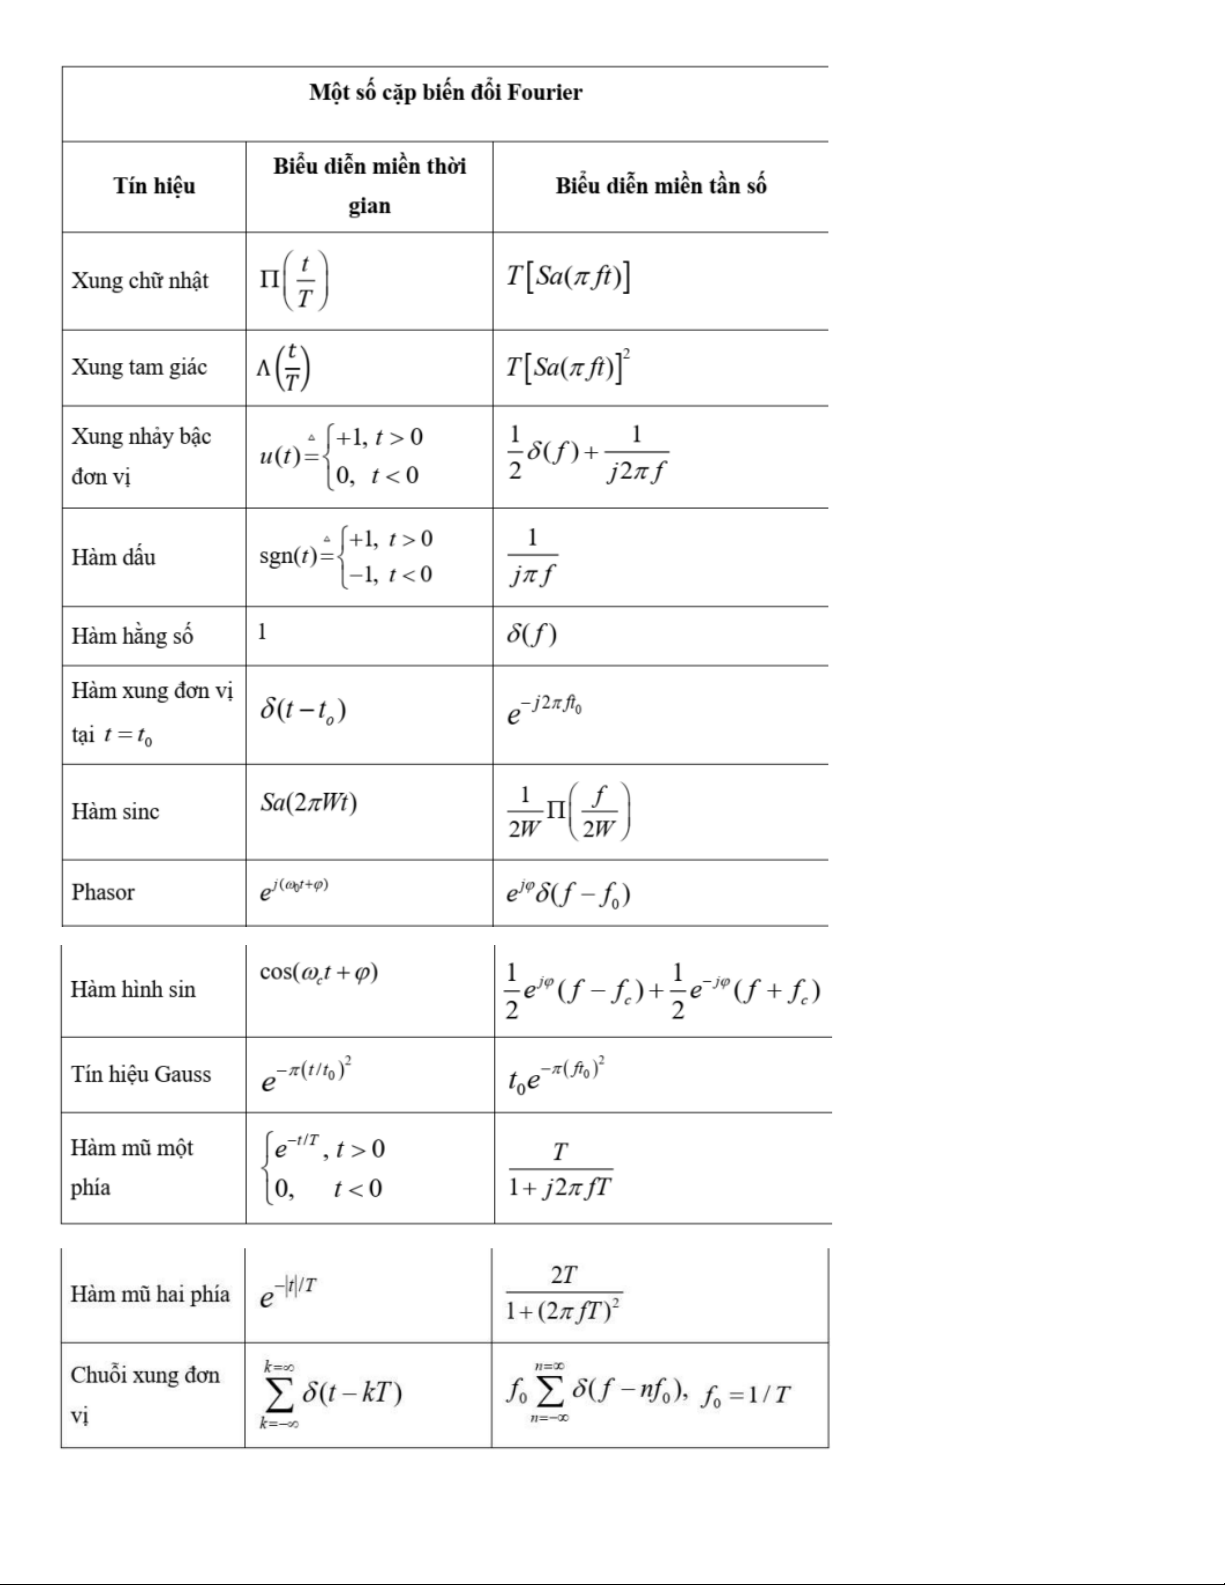 Một số cặp biến đổi Fourier
Tín hiệu | Biểu diễn miền thời gian | Biểu diễn miền tần số
Xung chữ nhật | Π(t/T) | T[Sa(πft)]
Xung tam giác | Λ(t/T) | T[Sa(πft)]²
Xung nhảy bậc đơn vị | u(t) ≜ {+1, t > 0; 0, t < 0 | 1/2 δ(f) + 1/(j2πf)
Hàm dấu | sgn(t) ≜ {+1, t > 0; −1, t < 0 | 1/(jπf)
Hàm hằng số | 1 | δ(f)
Hàm xung đơn vị tại t = t₀ | δ(t − tₒ) | e^(−j2πft₀)
Hàm sinc | Sa(2πWt) | 1/(2W) Π(f/(2W))
Phasor | e^(j(ω₀t+φ)) | e^(jφ) δ(f − f₀)
Hàm hình sin | cos(ω_c t + φ) | 1/2 e^(jφ) (f − f_c) + 1/2 e^(−jφ) (f + f_c)
Tín hiệu Gauss | e^(−π(t/t₀)²) | t₀e^(−π(ft₀)²)
Hàm mũ một phía | {e^(−t/T), t > 0; 0, t < 0 | T/(1 + j2πfT)
Hàm mũ hai phía | e^(−|t|/T) | 2T/(1 + (2πfT)²)
Chuỗi xung đơn vị | ∑_(k=−∞)^(k=∞) δ(t − kT) | f₀ ∑_(n=−∞)^(n=∞) δ(f − nf₀), f₀ = 1/T